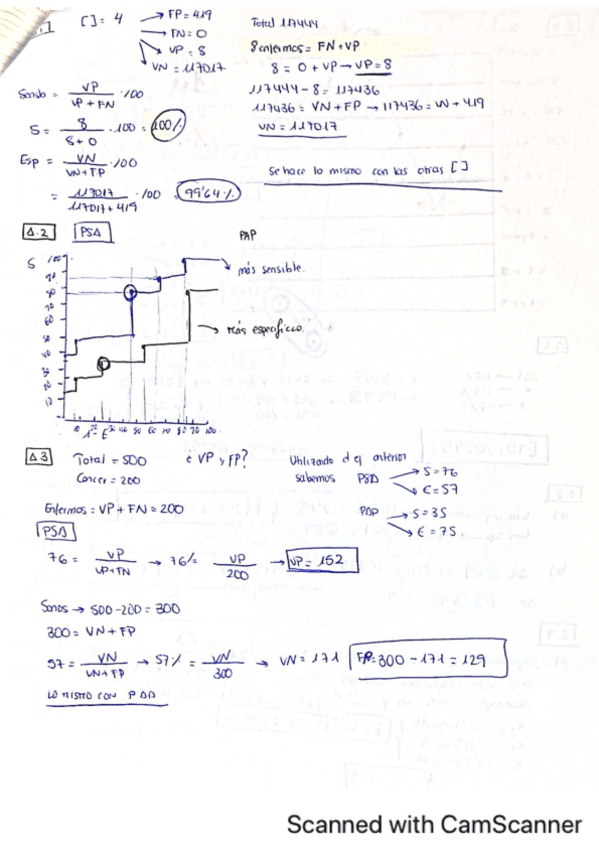 [ ] = 4 → FP = 419
→ FN = 0
→ VP = 8
→ VN = 117017
Total 117444
8 enfermos = FN + VP
8 = 0 + VP → VP = 8
117444 - 8 = 117436
117436 = VN + FP → 117436 = VN + 419
VN = 117017
= VP / VP + FN · 100
S = 8 / 8 + 0 · 100 = 100%
Esp = VN / VN + FP · 100
= 117017 / 117017 + 419 · 100 = 99'64%
Se hace lo mismo con las otras [ ]
1.2 PSA PAP
S
más sensible.
más específico.
1 - E
1.3 Total = 500 ¿VP y FP?
Cancer = 200
Utilizando el ej anterior
sabemos PSA → S = 76
→ E = 57
PAP → S = 35
→ E = 75.
Enfermos: VP + FN = 200
PSA
76 = VP / VP + FN → 76% = VP / 200 → VP = 152
Sanos → 500 - 200 = 300
300 = VN + FP
57 = VN / VN + FP → 57% = VN / 300 → VN = 171 FP = 300 - 171 = 129
LO MISMO CON PAP
Scanned with CamScanner